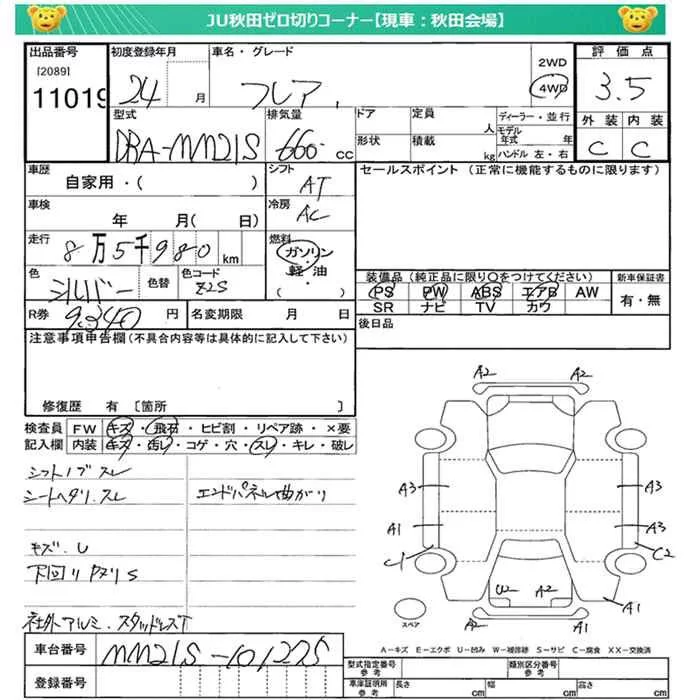 JU秋田ゼロ切りコーナー【現車：秋田会場】
出品番号 初度登録年月 車名・グレード 評価点
[2089] 11019 24 月 フレア 2WD 4WD 3.5
型式 排気量 ドア 定員 人 ディーラー・並行 外装 内装
DBA-MM21S 660 cc 形状 積載 kg モデル年式 年 ハンドル 左・右 C C
車歴 シフト セールスポイント (正常に機能するものに限ります)
自家用・( ) AT
車検 冷房
年 月( 日) AC
走行 8万5千980km 燃料 ガソリン・軽油 ( )
色 シルバー 色替 色コード Z2S
装備品 (純正品に限り○をつけてください) 新車保証書
PS PW ABS エアB AW 有・無
SR ナビ TV カワ
R券 9,340円 名変期限 月 日 後日品
注意事項申告欄 (不具合内容等は具体的に記入して下さい)
修復歴 有 〔箇所 〕
検査員 FW キズ・飛石・ヒビ割・リペア跡・×要
記入欄 内装 キズ・汚レ・コゲ・穴・スレ・キレ・破レ
シフトノブスレ
シートヘタリ.スレ
エンドパネル曲がり
キズ.U
下回りサビS
社外アルミ.スタッドレスT
A2 A2
A3 A3
A1 A3
C1 C2
U2 A2 A1
A2 A1
スペア
A-キズ E-エクボ U-凹み W-補修跡 S-サビ C-腐食 XX-交換済
車台番号 MM21S-101275
登録番号
型式指定番号 参考 類別区分番号 参考
車庫証明所 参考 長さ cm 幅 cm 高さ cm